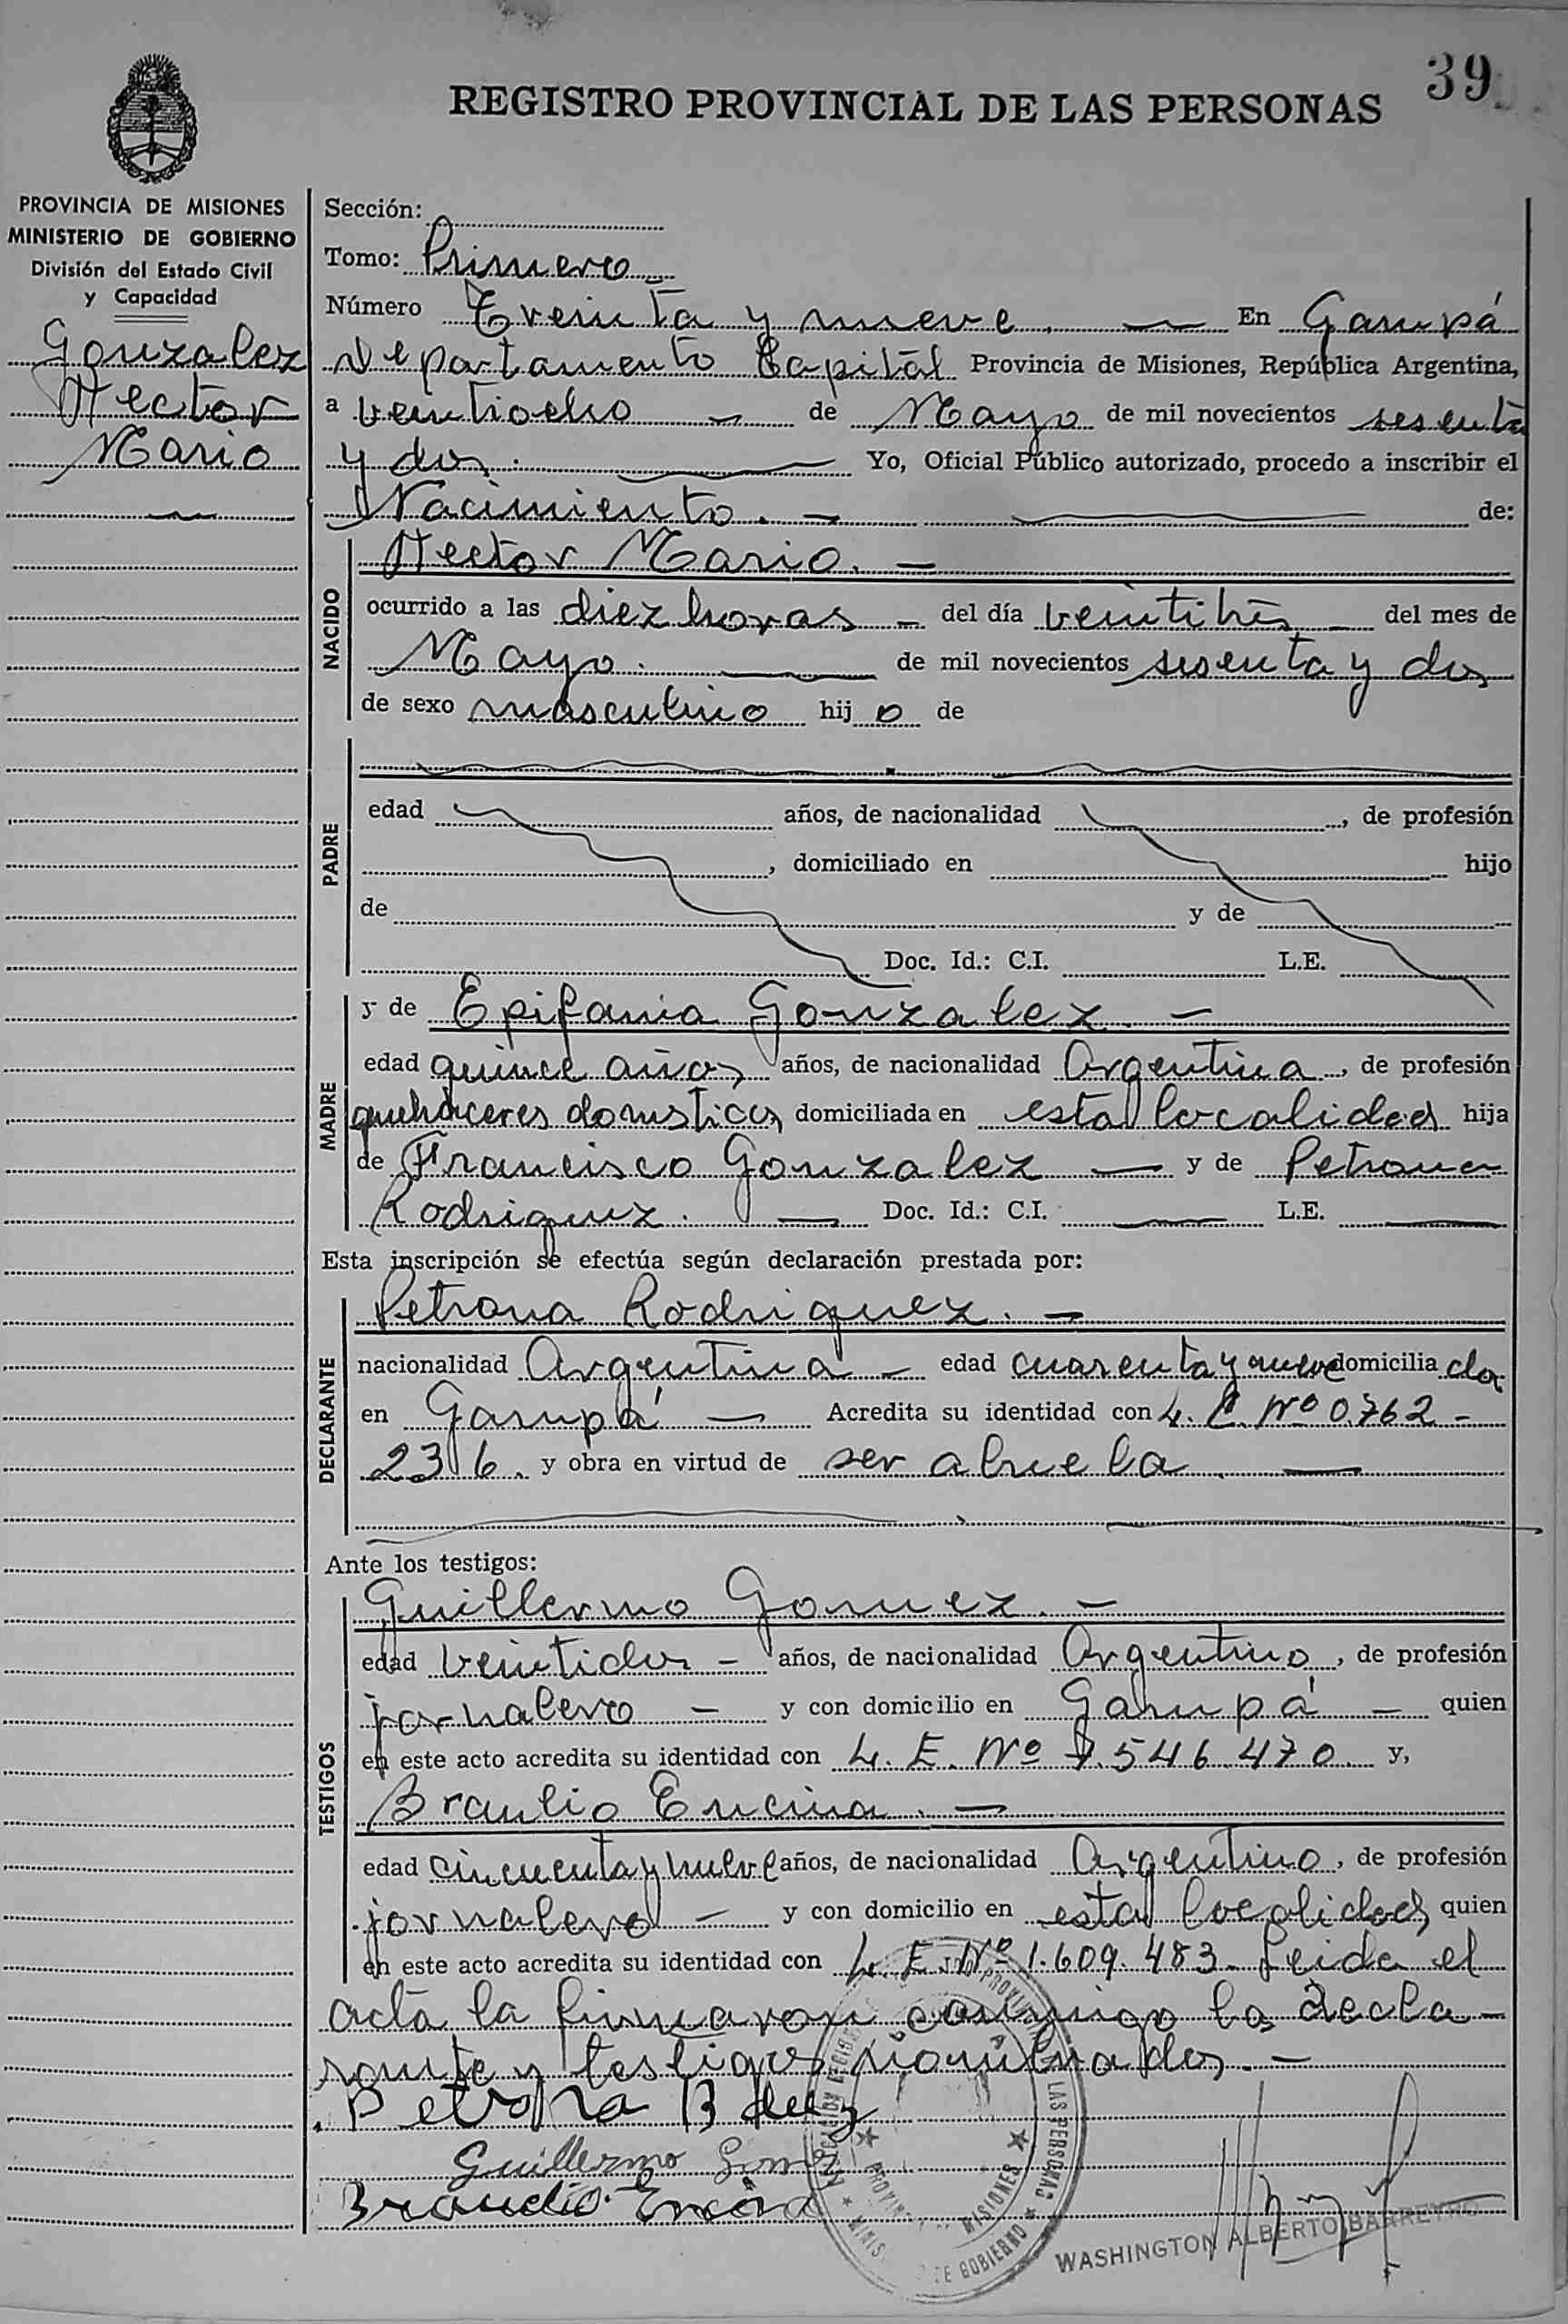 39
REGISTRO PROVINCIAL DE LAS PERSONAS
PROVINCIA DE MISIONES
MINISTERIO DE GOBIERNO
División del Estado Civil
y Capacidad
Gonzalez
Hector
Mario
Sección:
Tomo: Primero
Número Treinta y nueve. — En Garupá
Departamento Capital Provincia de Misiones, República Argentina,
a veintiocho — de Mayo de mil novecientos sesenta
y dos. — Yo, Oficial Público autorizado, procedo a inscribir el
Nacimiento. — de:
NACIDO
Hector Mario. —
ocurrido a las diez horas — del día veintitrés — del mes de
Mayo. — de mil novecientos sesenta y dos
de sexo masculino hij o de
PADRE
edad años, de nacionalidad , de profesión
, domiciliado en hijo
de y de
Doc. Id.: C.I. L.E.
MADRE
y de Epifania Gonzalez. —
edad quince años años, de nacionalidad Argentina, de profesión
quehaceres domesticos domiciliada en esta localidad hija
de Francisco Gonzalez — y de Petrona
Rodriguez. — Doc. Id.: C.I. — L.E. —
Esta inscripción se efectúa según declaración prestada por:
DECLARANTE
Petrona Rodriguez. —
nacionalidad Argentina — edad cuarenta y nueve domicilia da
en Garupá — Acredita su identidad con L. C. Nº 0.762-
236. y obra en virtud de ser abuela. —
Ante los testigos:
TESTIGOS
Guillermo Gomez. —
edad veintidos — años, de nacionalidad Argentino, de profesión
jornalero — y con domicilio en Garupá — quien
en este acto acredita su identidad con L. E. Nº 7.546.470. y,
Braulio Encina. —
edad cincuenta y nueve años, de nacionalidad Argentino, de profesión
jornalero — y con domicilio en esta localidad, quien
en este acto acredita su identidad con L. E. Nº 1.609.483. Leida el
acta la firmaron conmigo la decla-
rante y testigos nominados. —
Petrona
Guillermo Gomez
Encina
WASHINGTON ALBERTO BARREYRO
PROVINCIAL DE LAS PERSONAS
MISIONES
DE GOBIERNO